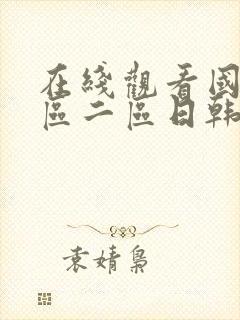 在綫觀看國
區二區日韩
袁婧梟